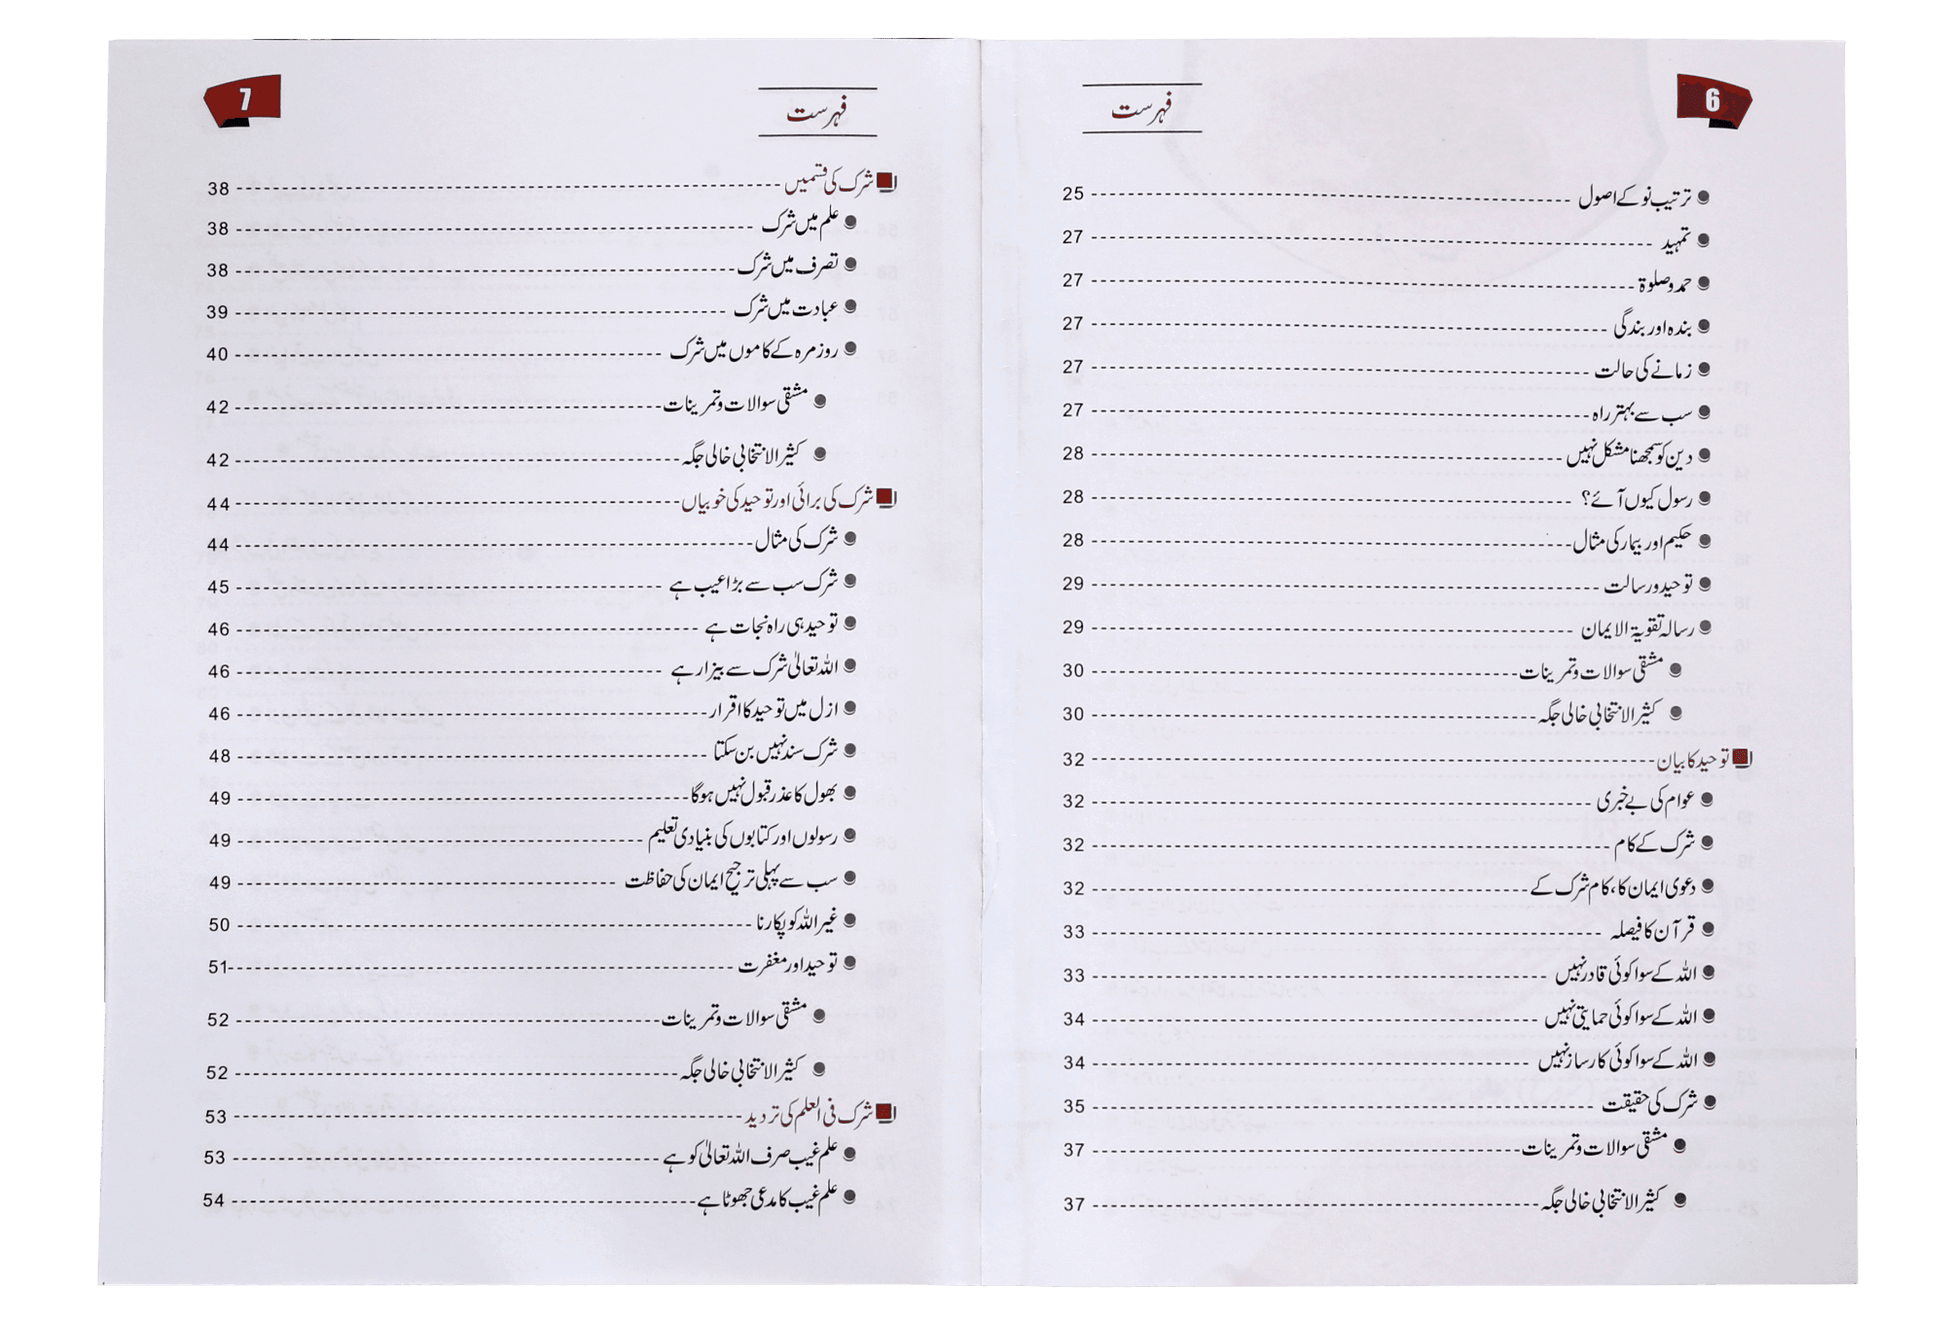 6
فہرست
ترتیب نو کے اصول 25
تمہید 27
حمد و صلوۃ 27
بندہ اور بندگی 27
زمانے کی حالت 27
سب سے بہتر راہ 27
دین کو سمجھنا مشکل نہیں 28
رسول کیوں آئے؟ 28
حکیم اور بیمار کی مثال 28
توحید و رسالت 29
رسالہ تقویۃ الایمان 29
مشقی سوالات و تمرینات 30
کثیر الانتخابی خالی جگہ 30
توحید کا بیان 32
عوام کی بے خبری 32
شرک کے کام 32
دعوی ایمان کا، کام شرک کے 32
قرآن کا فیصلہ 33
اللہ کے سوا کوئی قادر نہیں 33
اللہ کے سوا کوئی حمایتی نہیں 34
اللہ کے سوا کوئی کارساز نہیں 34
شرک کی حقیقت 35
مشقی سوالات و تمرینات 37
کثیر الانتخابی خالی جگہ 37
فہرست
7
شرک کی قسمیں 38
علم میں شرک 38
تصرف میں شرک 38
عبادت میں شرک 39
روزمرہ کے کاموں میں شرک 40
مشقی سوالات و تمرینات 42
کثیر الانتخابی خالی جگہ 42
شرک کی برائی اور توحید کی خوبیاں 44
شرک کی مثال 44
شرک سب سے بڑا عیب ہے 45
توحید ہی راہ نجات ہے 46
اللہ تعالیٰ شرک سے بیزار ہے 46
ازل میں توحید کا اقرار 46
شرک سند نہیں بن سکتا 48
بھول کا عذر قبول نہیں ہوگا 49
رسولوں اور کتابوں کی بنیادی تعلیم 49
سب سے پہلی ترجیح ایمان کی حفاظت 49
غیر اللہ کو پکارنا 50
توحید اور مغفرت 51
مشقی سوالات و تمرینات 52
کثیر الانتخابی خالی جگہ 52
شرک فی العلم کی تردید 53
علم غیب صرف اللہ تعالیٰ کو ہے 53
علم غیب کا مدعی جھوٹا ہے 54